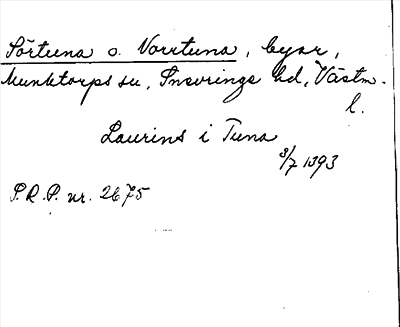 Sörtuna o. Norrtuna, byar,
Munktorps sn, Snevringe hd, Västm.
l.
Laurins i Tuna
3/7 1393
S.R.P. nr. 2675